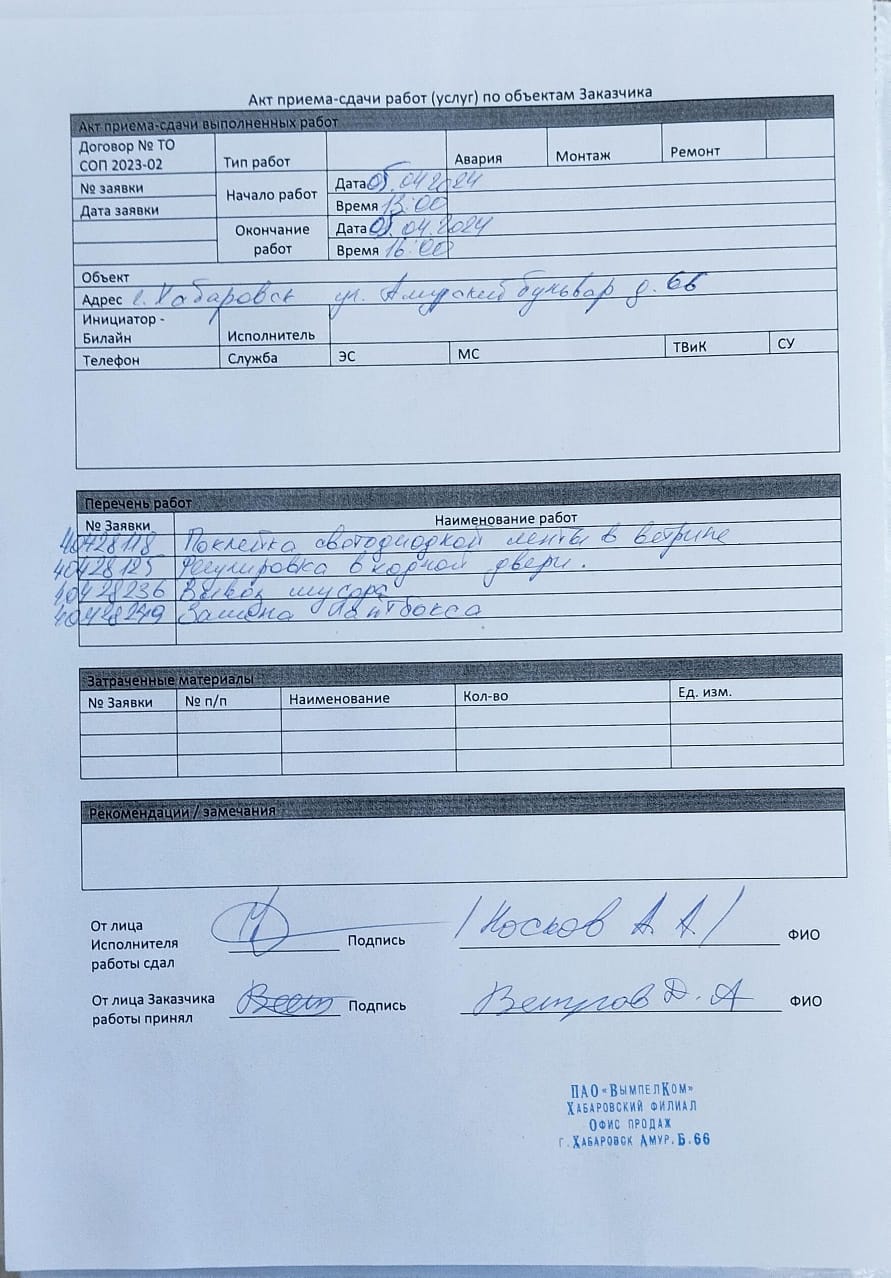 Акт приема-сдачи работ (услуг) по объектам Заказчика
Акт приема-сдачи выполненных работ
Договор № ТО СОП 2023-02 Тип работ Авария Монтаж Ремонт
№ заявки Начало работ Дата 05.04.2024
Дата заявки Время 13:00
Окончание работ Дата 05.04.2024
Время 16:00
Объект
Адрес г. Хабаровск ул. Амурский бульвар д. 66
Инициатор - Билайн Исполнитель
Телефон Служба ЭС МС ТВиК СУ
Перечень работ
№ Заявки Наименование работ
40428118 Поклейка светодиодной ленты в ветрине
40428125 Регулировка входной двери.
40428236 Вывоз мусора
40428249 Замена Лайтбокса
Затраченные материалы
№ Заявки № п/п Наименование Кол-во Ед. изм.
Рекомендации / замечания
От лица
Исполнителя
работы сдал Подпись /Носков А А/ ФИО
От лица Заказчика
работы принял Подпись Д. А ФИО
ПАО «ВымпелКом»
Хабаровский филиал
Офис продаж
г. Хабаровск Амур. Б. 66